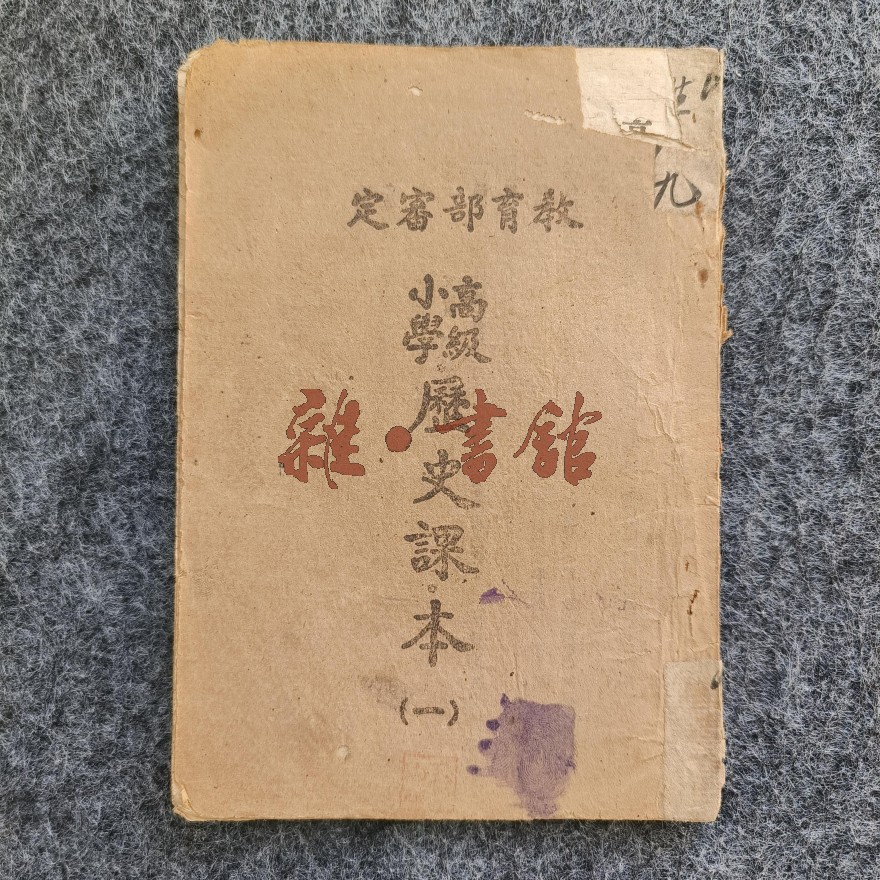 教育部審定
高級
小學
歷史課本
(一)
九
雜·書館